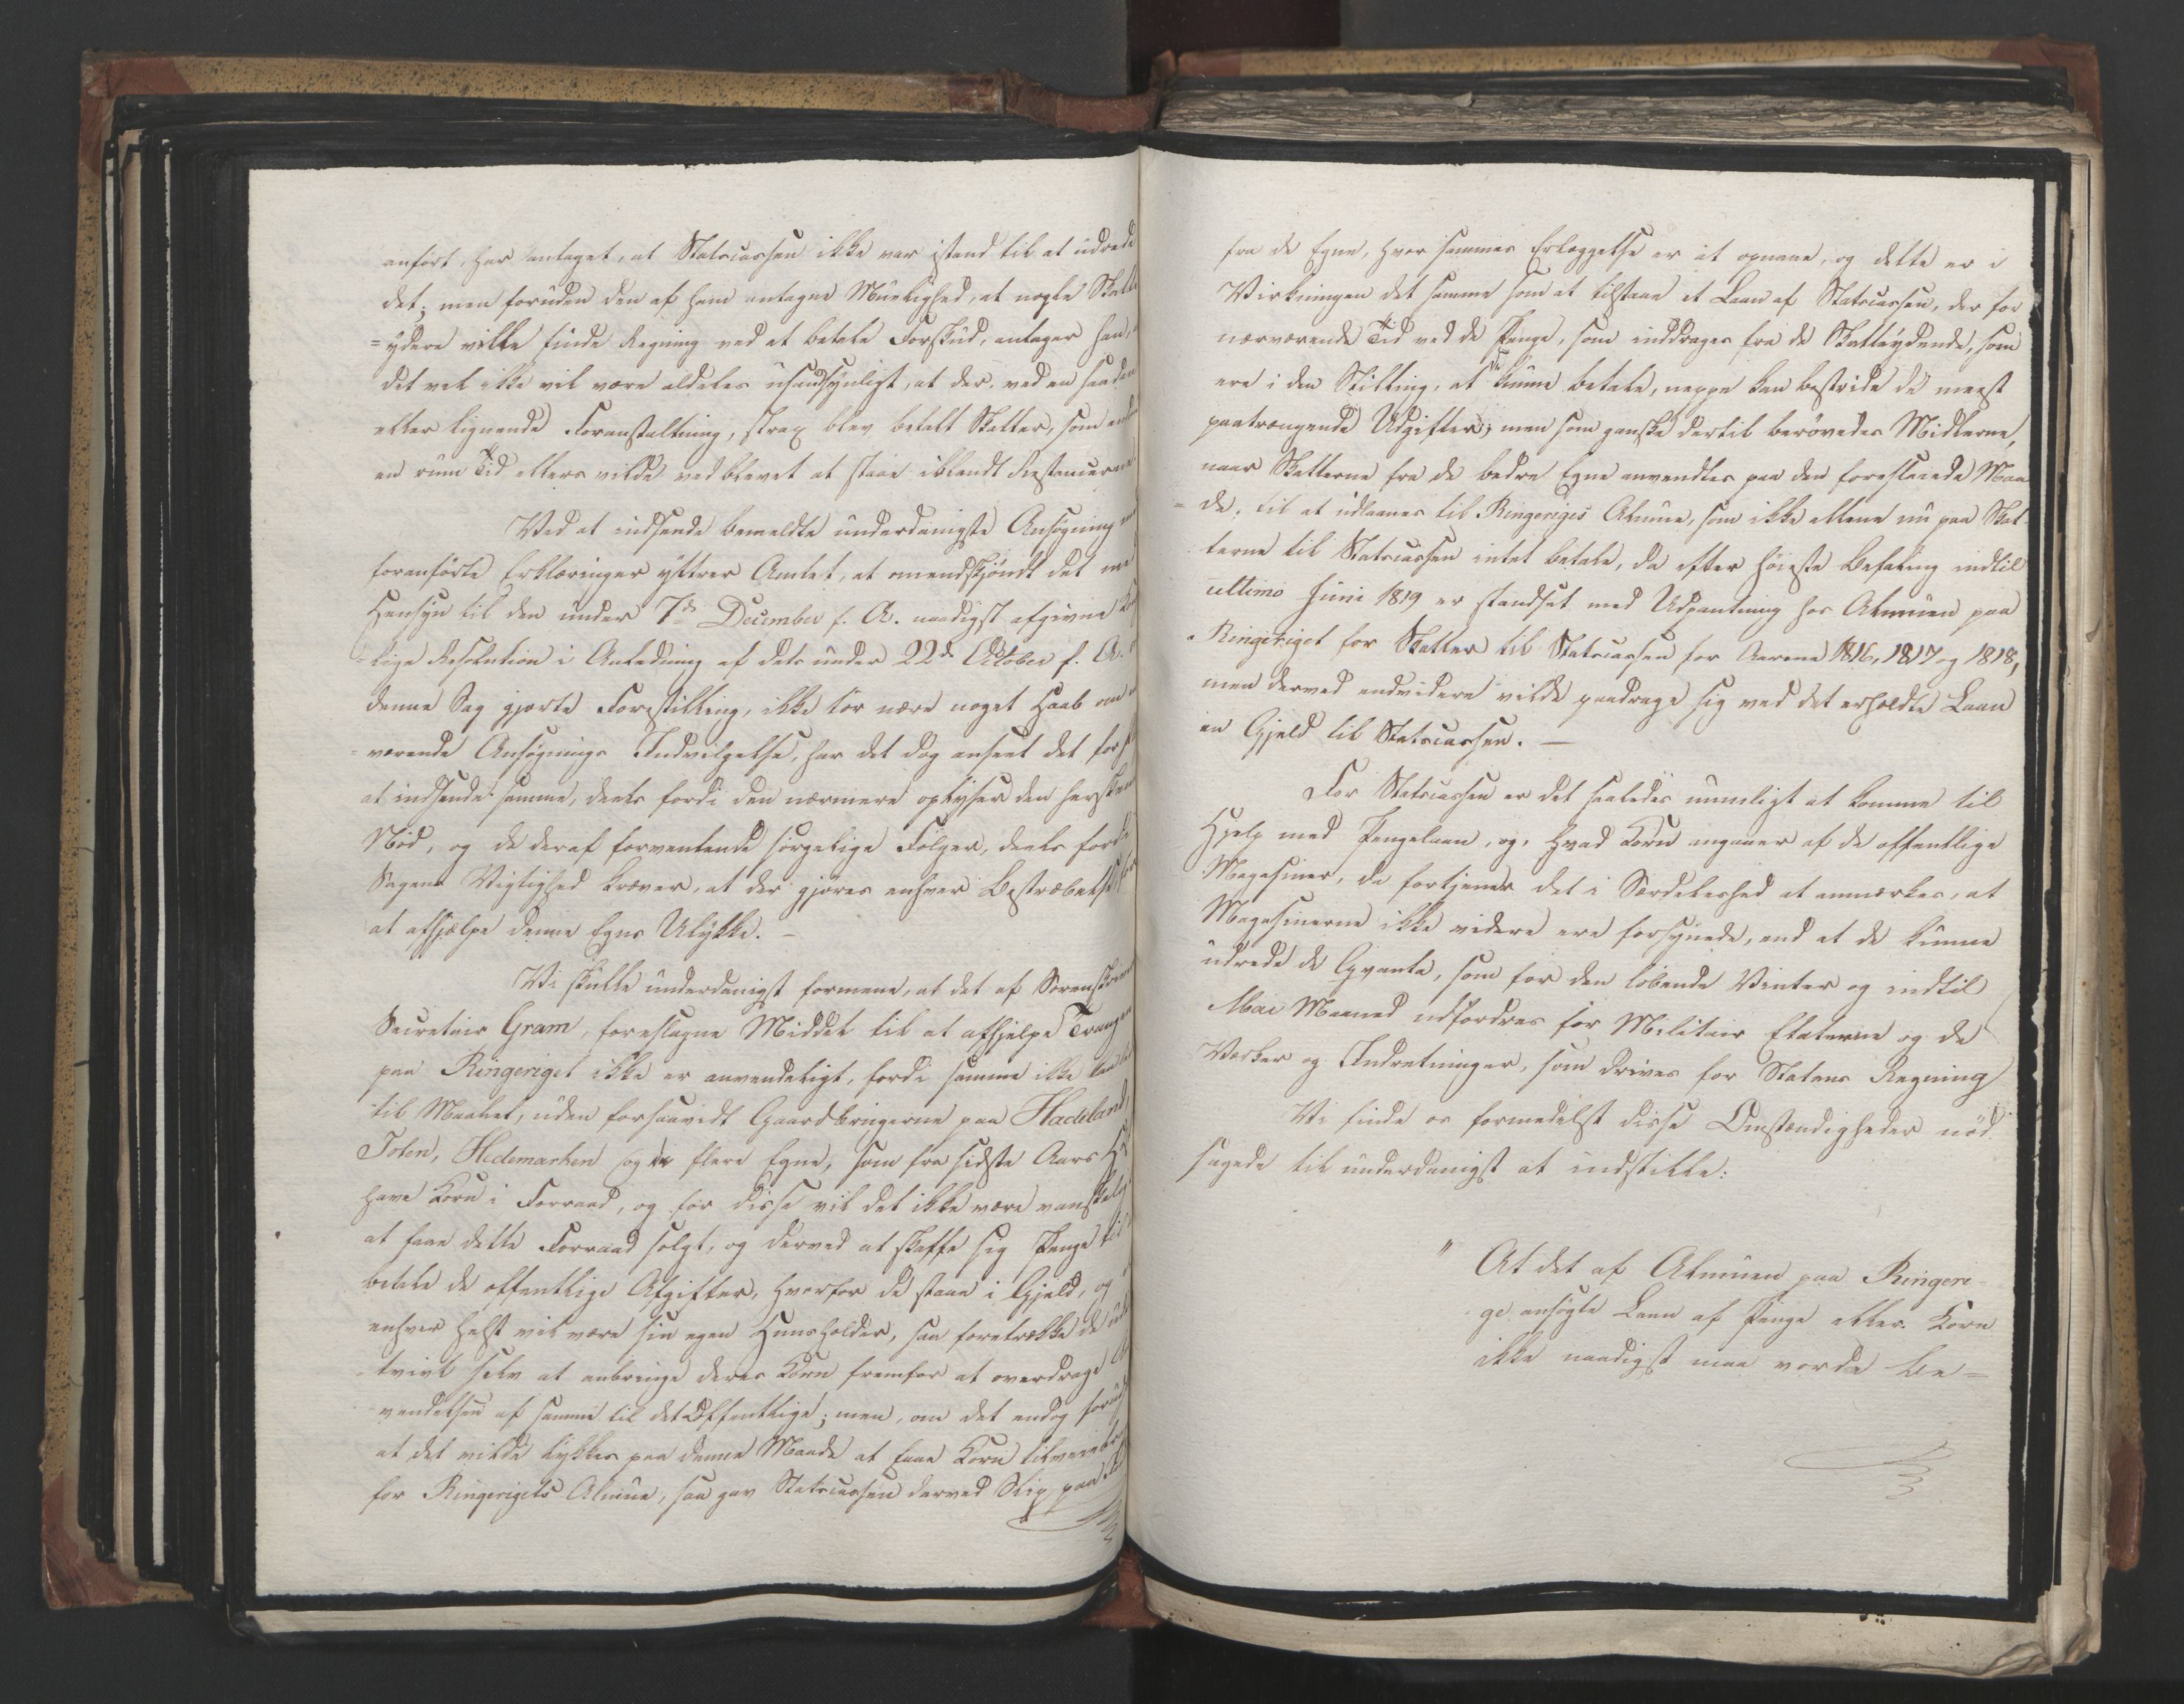 anført, har antaget, at Statscassen ikke var istand til at udrede
det; men foruden den af ham antagne Muelighed, at nogle Skatte
=ydere ville finde Regning ved at betale Forskud, antager han,
det vel ikke vil være aldeles usandsynligt, at der, ved en saadan
eller lignende Foranstaltning, strax blev betalt Skatter, som
en rum Tid ellers vilde vedblevet at staae iblandt Restancerne
Ved at indsende bemeldte underdanigste Ansøgning
foranførte Erklæringer yttrer Amtet, at omendskjøndt det
Hensyn til den under 7de December f. A. naadigst afgivne
=lige Resolution i Anledning af dets under 22de October f. A.
denne Sag gjorte Forestilling, ikke tør nære noget Haab om
=værende Ansøgnings Indvilgelse, har det dog anseet det for
at indsende samme, deels fordi den nærmere oplyser den
Nød, og de deraf forventende sørgelige Følger, deels fordi
Sagens Vigtighed kræver, at der gjøres enhver Bestræbelse for
at afhjælpe denne Egns Ulykke. –
Vi skulle underdanigst formene, at det af Sorenskriver
Secretair Gram, foreslagne Middel til at afhjelpe Trangen
paa Ringeriget ikke er anvendeligt, fordi samme ikke kan
til Maalet, uden forsaavidt Gaardbrugerne paa Hadeland,
Toten, Hedemarken og de flere Egne, som fra sidste Aars
have Korn i Forraad, og for disse vil det ikke være vanskeligt
at faae dette Forraad solgt, og derved at skaffe sig Penge til
betale de offentlige Afgifter, hvorfor de staae i Gjeld, og
enhver helst vil være sin egen Huusholder, saa foretrække de
tvivl selv at anbringe deres Korn fremfor at overdrage
=vendelsen af samme til det Offentlige; men, om det endog
at det vilde lykkes paa denne Maade at faae Korn
for Ringerigets Almue, saa gav Statscassen derved Slip paa
fra de Egne, hvor sammes Erlæggelse er at opnaae, og dette er i
Virkningen det samme som at tilstaae et Laan af Statscassen, der for
nærværende Tid ved de Penge, som inddrages fra de Skatteydende, som
ere i den Stilling, at kunne betale, neppe kan bestride de meest
paatrængende Udgifter; men som ganske dertil berøvedes Midlerne,
naar Skatterne fra de bedre Egne anvendtes paa den foreslaaede Maa
=de, til at udlaanes til Ringeriges Almue, som ikke allene nu paa Skat
terne til Statscassen intet betale, da efter høieste Befaling indtil
ultimo Junii 1819 er standset med Udpantning hos Almuen paa
Ringeriget for Skatter til Statscassen for Aarene 1816, 1817 og 1818,
men derved endvidere vilde paadrage sig ved det erholdte Laan
en Gjeld til Statscassen. –
For Statscassen er det saaledes umueligt at komme til
Hjelp med Pengelaan, og, hvad Korn angaaer af de offentlige
Magasiner, da fortjener det i Særdeleshed at anmærkes, at
Magasinerne ikke videre ere forsynede, end at de kunne
udrede de Qvanta, som for den løbende Vinter og indtil
Mai Maaned udfordres for Militair Etaterne og de
Værker og Indretninger, som drives for Statens Regning
Vi finde os formedelst disse Omstændigheder nød
sagede til underdanigst at indstille:
" At det af Almuen paa Ringeri=
ge ansøgte Laan af Penge eller Korn
ikke naadigst maa vorde be=